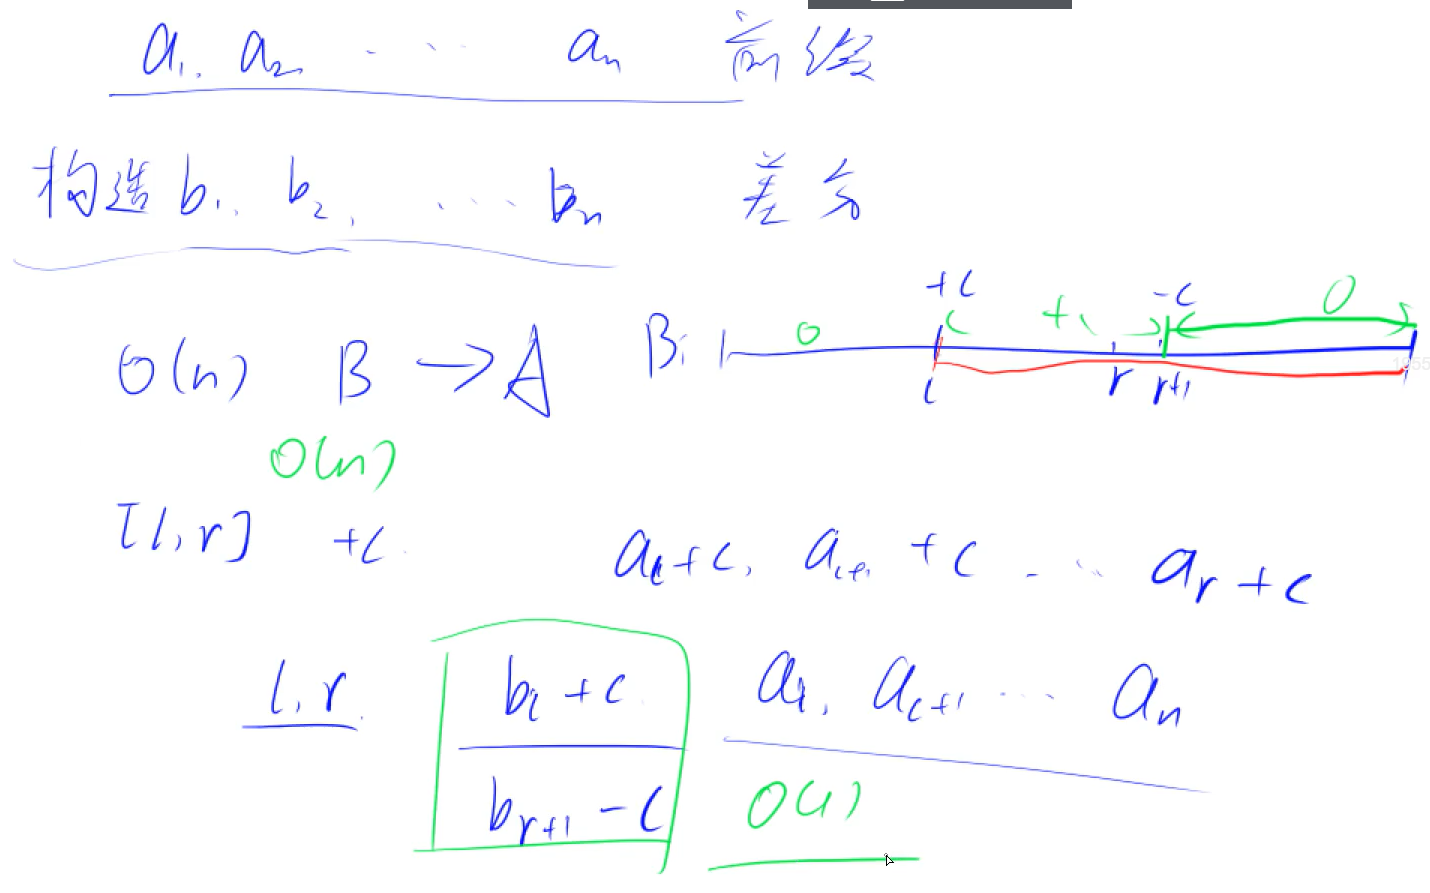 a₁, a₂ ...... aₙ 前缀
构造 b₁, b₂, ...... bₙ 差分
+c -c 0
B: 0 +c
O(n) B → A
l r r+1
O(n)
[l, r] +c aₗ+c, aₗ₊₁+c ...... aᵣ+c
l, r bₗ+c aₗ, aₗ₊₁ ...... aₙ
bᵣ₊₁-c O(1)